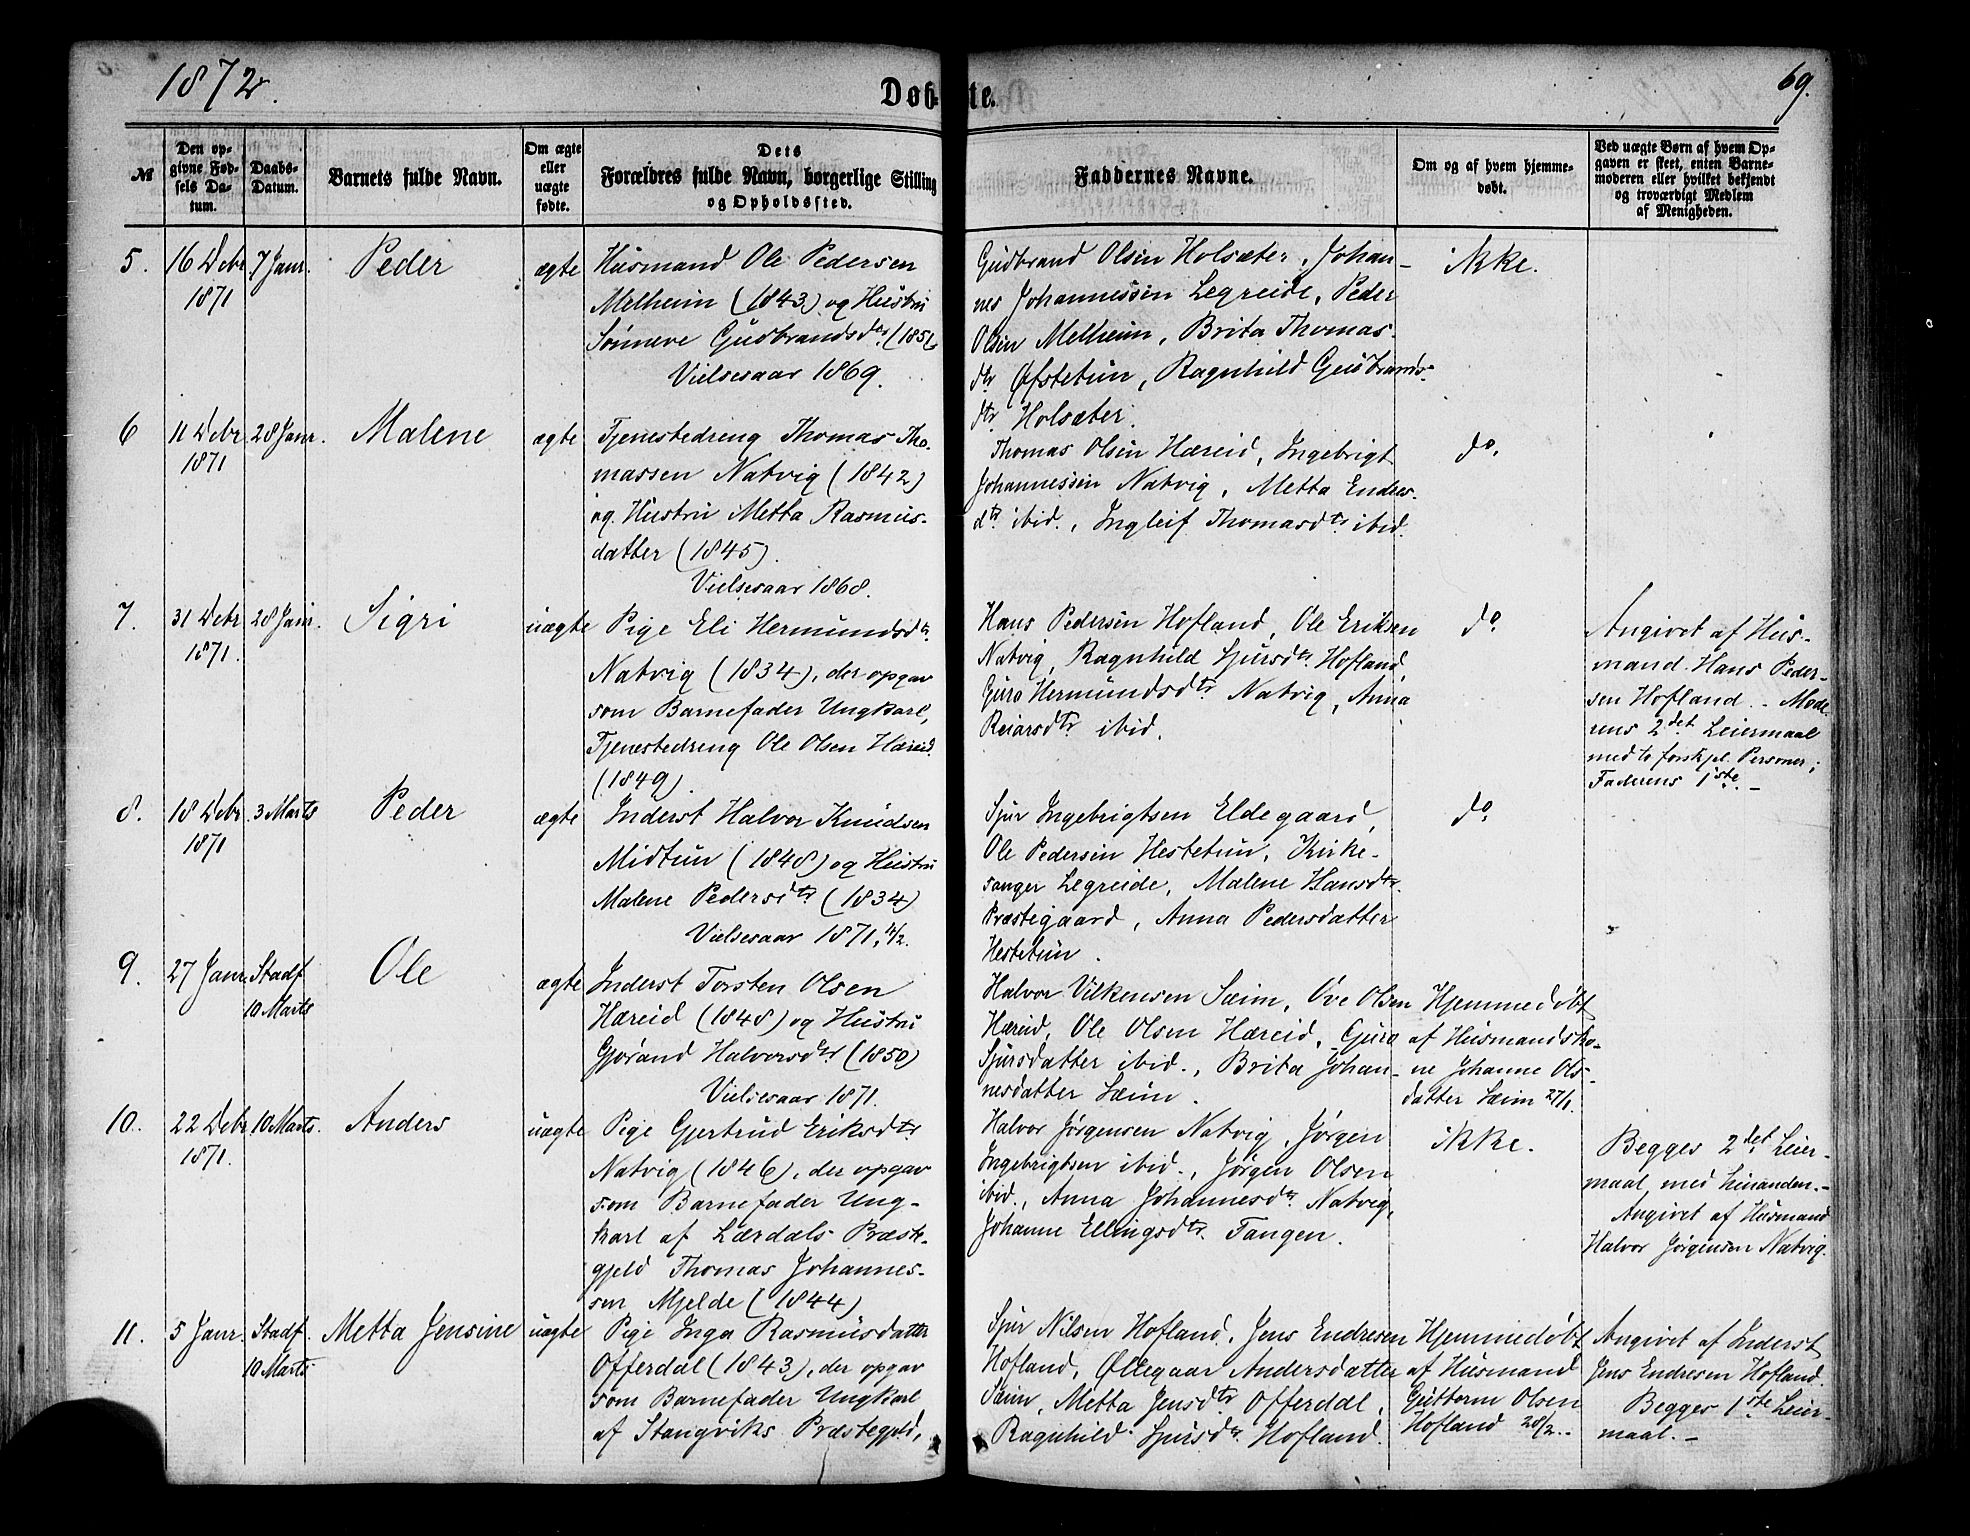 1872.
Døb-te.
69.
№
Den op-
givne Fød-
sels Da-
tum.
Daabs-
Datum.
Barnets fulde Navn.
Om ægte
eller
uægte
fødte.
Dets
Forældres fulde Navn, borgerlige Stilling
og Opholdssted.
Faddernes Navne.
Om og af hvem hjemme-
døbt.
Ved uægte Børn af hvem Op-
gaven er skeet, enten Barne-
moderen eller hvilket bekjendt
og troværdigt Medlem
af Menigheden.
5.
16 Debr
1871
7 Janr.
Peder
ægte
Husmand Ole Pedersen
Melheim (1843) og Hustru
Sønneve Gudbrandsdtr. (185
Vielsesaar 1869.
Gudbrand Olsen Holsæter, Johan-
nes Johannessen Legreide, Peder
Olsen Melheim, Brita Thomas-
dtr Øfstetun, Ragnhild Gudbrands-
dtr Holsæter.
ikke.
6
11 Debr
1871
28 Janr.
Malene
ægte
Tjenestedreng Thomas Tho-
massen Natvig (1842)
og Hustru Metta Rasmus-
datter (1845)
Vielsesaar 1868.
Thomas Olsen Hæreid, Ingebrigt
Johannessen Natvig, Metta Endres-
dtr ibid., Ingleif Thomasdtr ibid.
do.
7.
31 Debr
1871.
28 Janr.
Sigri
uægte
Pige Eli Hermundsdtr.
Natvig (1834), der opgav
som Barnefader Ungkarl,
Tjenestedreng Ole Olsen Hæreid
(1849)
Hans Pedersen Hofland, Ole Eriksen
Natvig, Ragnhild Sjursdtr. Hofland
Guro Hermundsdtr Natvig, Anna
Reiarsdtr ibid.
do
Angivet af Hus-
mand Hans Peder-
sen Hofland. - Mode-
rens 2det Leiermaal
med to forskjel. Personer;
Faderens 1ste. -
8.
18 Debr.
1871
3 Marts
Peder
ægte
Inderst Halvor Knudsen
Midtun (1848) og Hustru
Malene Pedersdtr (1834)
Vielsesaar 1871, 4/2.
Sjur Ingebrigtsen Eldegaard,
Ole Pedersen Hestetun, Kirke-
sanger Legreide, Malene Hansdtr.
Præstegaard, Anna Pedersdatter
Hestetun.
do
9.
27 Janr.
Stadf.
10 Marts
Ole
ægte
Inderst Torsten Olsen
Hæreid (1848) og Hustru
Gjørand Halvorsdtr (1850)
Vielsesaar 1871.
Halvor Vilkensen Sæim, Ove Olsen
Hæreid, Ole Olsen Hæreid, Guro
Sjursdatter ibid., Brita Johan-
nesdatter Sæim.
Hjemmedøbt
af Husmandsko-
ne Johanne Ols-
datter Sæim 27/1.
10.
22 Debr
1871.
10 Marts.
Anders
uægte
Pige Gjertrud Eriksdtr
Natvig (1846), der opgav
som Barnefader Ung-
karl af Lærdals Præste-
gjeld Thomas Johannes-
sen Mjelde (1844)
Halvor Jørgensen Natvig, Jørgen
Ingebrigtsen ibid., Jørgen Olsen
ibid., Anna Johannesdtr. Natvig,
Johanne Ellingsdtr. Tangen.
ikke.
Begges 2det Leier-
maal med hinanden. -
Angivet af Husmand
Halvor Jørgensen Natvig.
11.
5 Janr.
Stadf.
10 Marts
Metta Jensine
uægte
Pige Inga Rasmusdatter
Offerdal (1843), der opgav
som Barnefader Ungkarl
af Stangviks Præstegjeld,
Sjur Nilsen Hofland, Jens Endresen
Hofland, Øllegaar Andersdatter
Sæim, Metta Jensdtr Offerdal,
Ragnhild Sjursdtr. Hofland.
Hjemmedøbt
af Husmand
Guttorm Olsen
Hofland 20/2. -
Angivet af Inderst
Jens Endresen Hofland.
Begges 1ste Leier-
maal. -